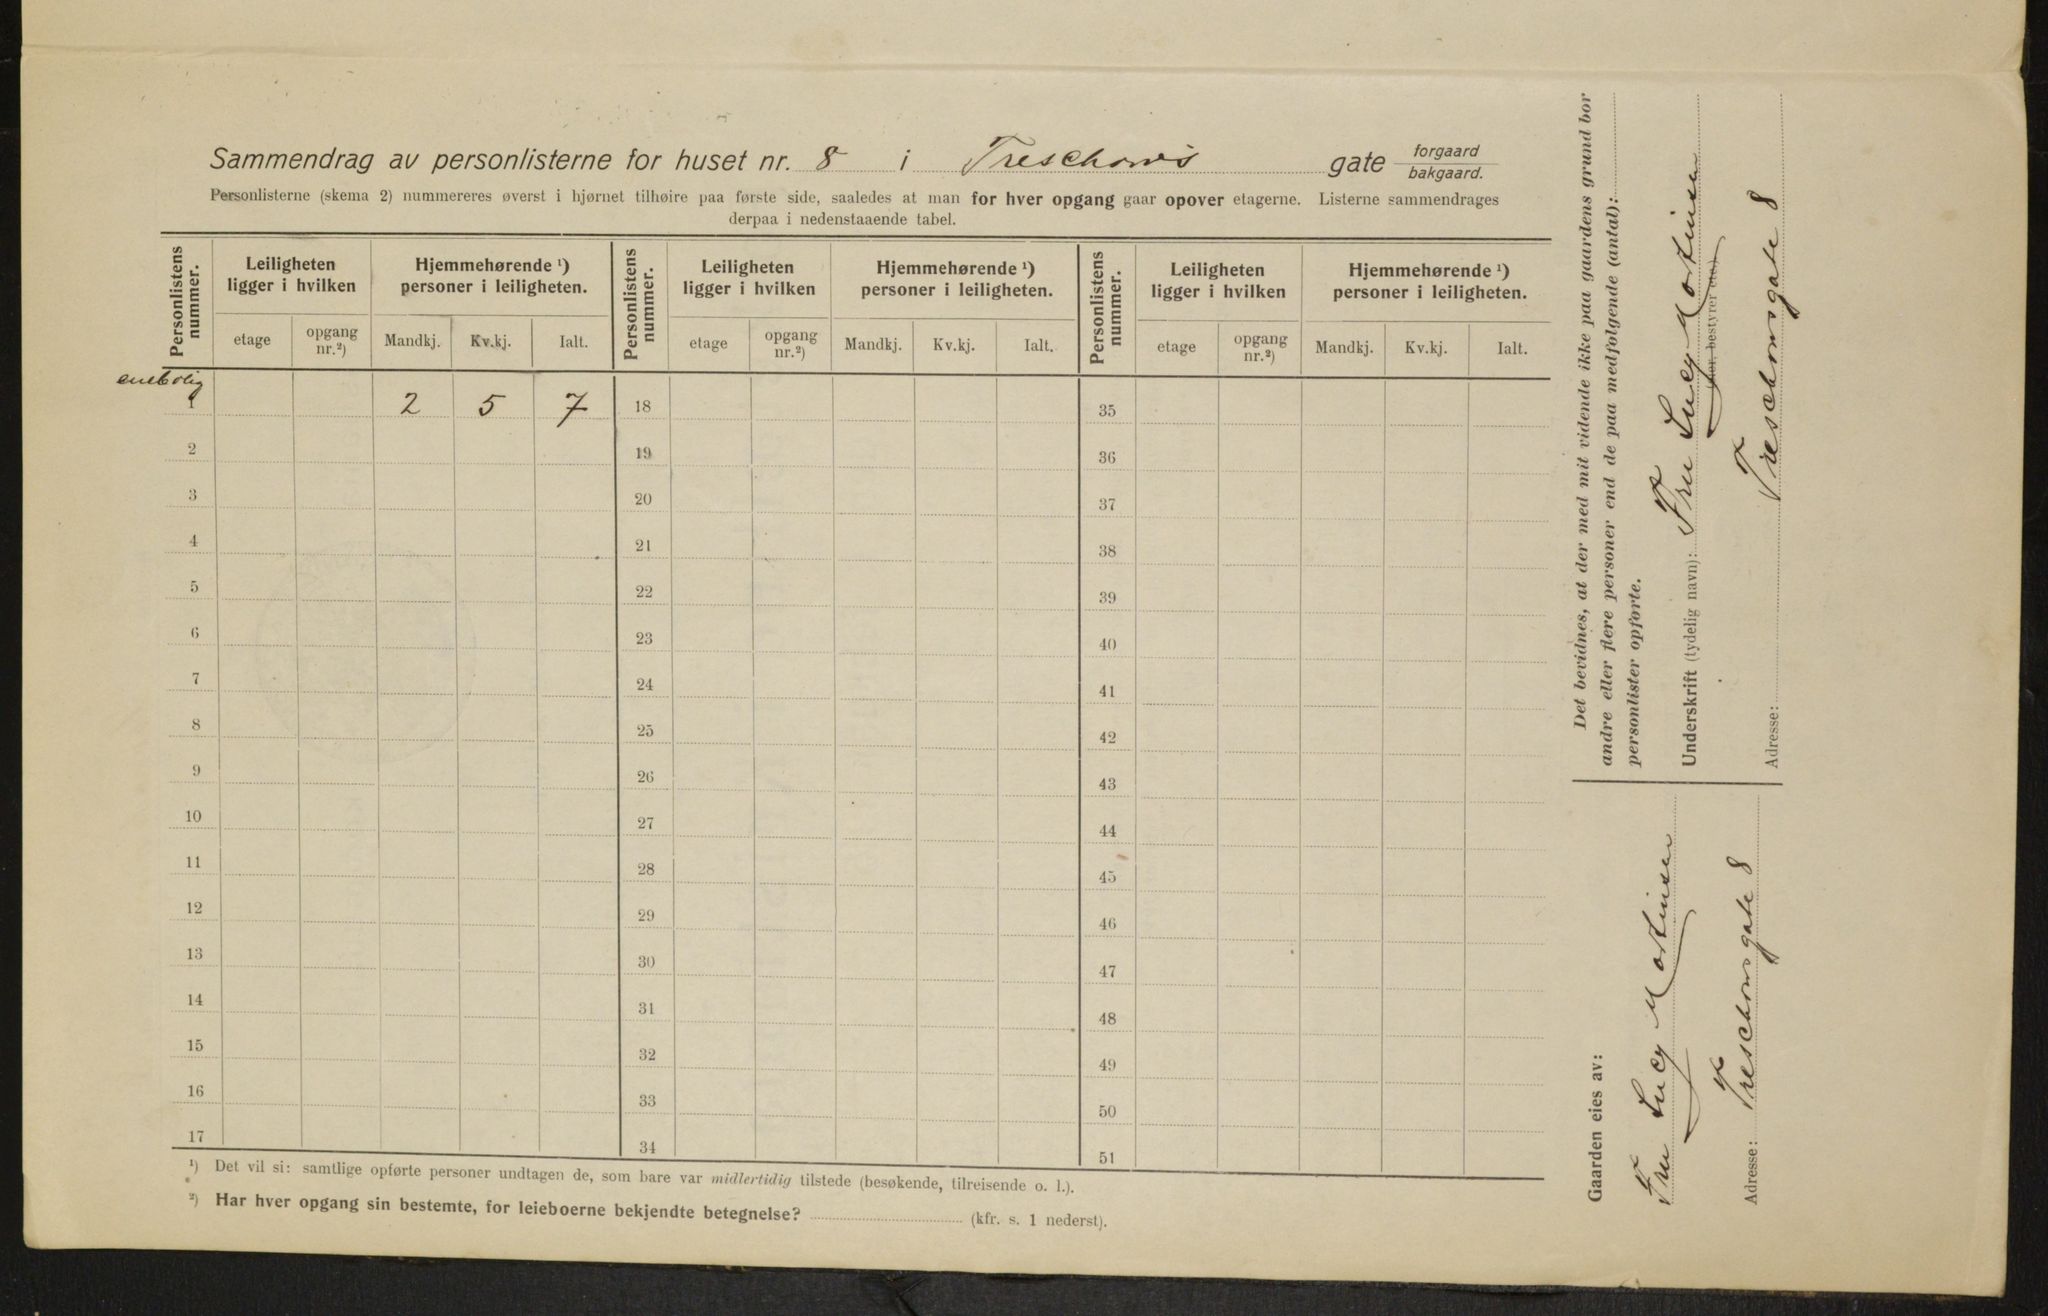 Sammendrag av personlisterne for huset nr. 8 i Treschows gate forgaard bakgaard.
Personlisterne (skema 2) nummereres øverst i hjørnet tilhøire paa første side, saaledes at man for hver opgang gaar opover etagerne. Listerne sammendrages
derpaa i nedenstaaende tabel.
Personlistens nummer. Leiligheten ligger i hvilken Hjemmehørende ¹) personer i leiligheten. Personlistens nummer. Leiligheten ligger i hvilken Hjemmehørende ¹) personer i leiligheten. Personlistens nummer. Leiligheten ligger i hvilken Hjemmehørende ¹) personer i leiligheten.
etage opgang nr.²) Mandkj. Kv.kj. Ialt. etage opgang nr.²) Mandkj. Kv.kj. Ialt. etage opgang nr.²) Mandkj. Kv.kj. Ialt.
enebolig
1 2 5 7 18 35
2 19 36
3 20 37
4 21 38
5 22 39
6 23 40
7 24 41
8 25 42
9 26 43
10 27 44
11 28 45
12 29 46
13 30 47
14 31 48
15 32 49
16 33 50
17 34 51
¹) Det vil si: samtlige opførte personer undtagen de, som bare var midlertidig tilstede (besøkende, tilreisende o. l.).
²) Har hver opgang sin bestemte, for leieboerne bekjendte betegnelse? (kfr. s. 1 nederst).
Det bevidnes, at der med mit vidende ikke paa gaardens grund bor
andre eller flere personer end de paa medfølgende (antal):
personlister opførte.
Underskrift (tydelig navn): Fru Lucy Mortensen
(eier, bestyrer etc.)
Adresse: Treschowsgate 8
Gaarden eies av:
Fru Lucy Mortensen
Adresse: Treschowsgate 8